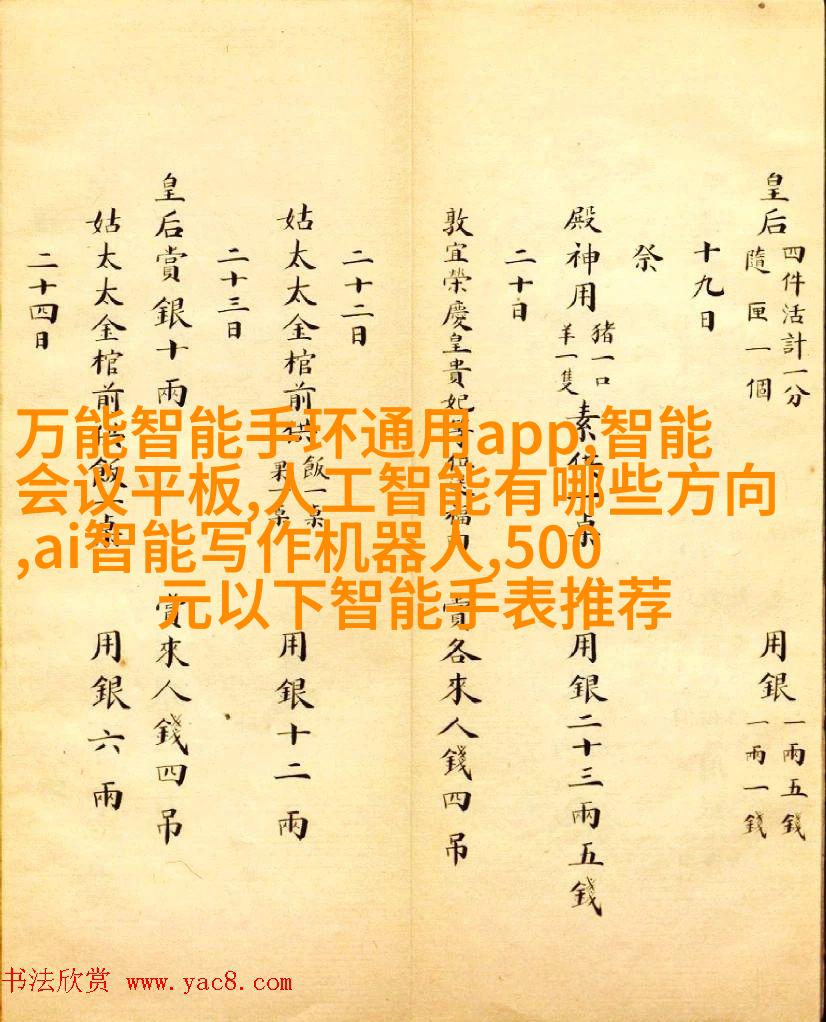 皇后 四件活計一分 隨匣一個 用銀 一兩五錢 一兩一錢
十九日
祭
殿神用 豬一口 羊一隻 素供一桌 用銀二十三兩五錢
二十日
敦宜榮慶皇貴妃 賞各來人錢四吊
二十二日
姑太太金棺前供 飯一桌 果一桌 用銀十二兩
二十三日
皇后賞銀十兩 賞來人錢四吊
姑太太金棺前供飯一桌 用銀六兩
二十四日
万能智能手环通用app,智能
会议平板,人工智能有哪些方向
,ai智能写作机器人,500
元以下智能手表推荐
书法欣赏 www.yac8.com